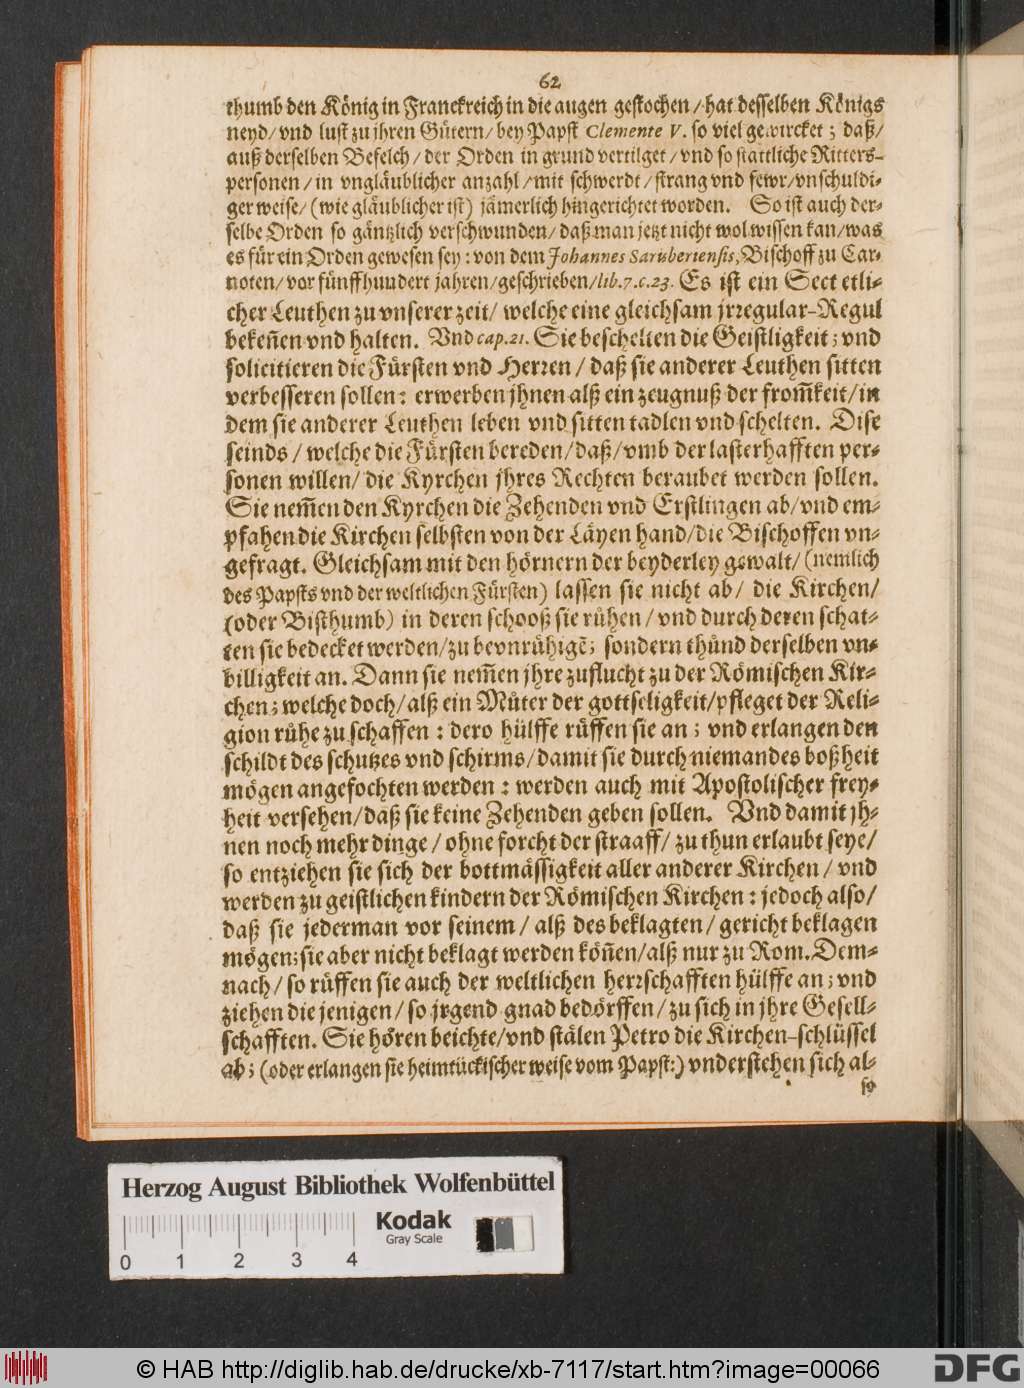 62
thumb den König in Franckreich in die augen gestochen / hat desselben Königs
neyd / vnd lust zu jhren Gütern / bey Papst Clemente V. so viel gewircket ; daß /
auß derselben Befelch / der Orden in grund vertilget / vnd so stattliche Ritters-
personen / in vngläublicher anzahl / mit schwerdt / strang vnd fewr / vnschuldi-
ger weise / (wie gläublicher ist) jämerlich hingerichtet worden. So ist auch der-
selbe Orden so gäntzlich verschwunden / daß man jetzt nicht wol wissen kan / was
es für ein Orden gewesen sey : von dem Johannes Sarisberiensis, Bischoff zu Car-
noten / vor fünffhundert jahren / geschrieben / lib. 7. c. 23. Es ist ein Sect etli-
cher Leuthen zu vnserer zeit / welche eine gleichsam jrregular-Regul
bekeñen vnd halten. Vnd cap. 21. Sie beschelten die Geistligkeit ; vnd
solicitieren die Fürsten vnd Herren / daß sie anderer Leuthen sitten
verbesseren sollen : erwerben jhnen alß ein zeugnuß der from̃keit / in
dem sie anderer Leuthen leben vnd sitten tadlen vnd schelten. Dise
seinds / welche die Fürsten bereden / daß / vmb der lasterhafften per-
sonen willen / die Kyrchen jhres Rechten beraubet werden sollen.
Sie nem̃en den Kyrchen die Zehenden vnd Erstlingen ab / vnd em-
pfahen die Kirchen selbsten von der Läyen hand / die Bischoffen vn-
gefragt. Gleichsam mit den hörnern der beyderley gewalt / (nemlich
des Papsts vnd der weltlichen Fürsten) lassen sie nicht ab / die Kirchen /
(oder Bisthumb) in deren schooß sie rühen / vnd durch deren schat-
ten sie bedecket werden / zu bevnrühigẽ ; sondern thůnd derselben vn-
billigkeit an. Dann sie nem̃en jhre zuflucht zu der Römischen Kir-
chen ; welche doch / alß ein Můter der gottseligkeit / pfleget der Reli-
gion růhe zu schaffen : dero hülffe rüffen sie an ; vnd erlangen den
schildt des schutzes vnd schirms / damit sie durch niemandes boßheit
mögen angefochten werden : werden auch mit Apostolischer frey-
heit versehen / daß sie keine Zehenden geben sollen. Vnd damit jh-
nen noch mehr dinge / ohne forcht der straaff / zu thun erlaubt seye /
so entziehen sie sich der bottmässigkeit aller anderer Kirchen / vnd
werden zu geistlichen kindern der Römischen Kirchen : jedoch also /
daß sie jederman vor seinem / alß des beklagten / gericht beklagen
mögen ; sie aber nicht beklagt werden köñen / alß nur zu Rom. Dem-
nach / so rüffen sie auch der weltlichen herrschafften hülffe an ; vnd
ziehen die jenigen / so jrgend gnad bedörffen / zu sich in jhre Gesell-
schafften. Sie hören beichte / vnd stälen Petro die Kirchen-schlüssel
ab ; (oder erlangen sie heimtückischer weise vom Papst :) vnderstehen sich al-
so
Herzog August Bibliothek Wolfenbüttel
Kodak
Gray Scale
0 1 2 3 4
© HAB http://diglib.hab.de/drucke/xb-7117/start.htm?image=00066
DFG